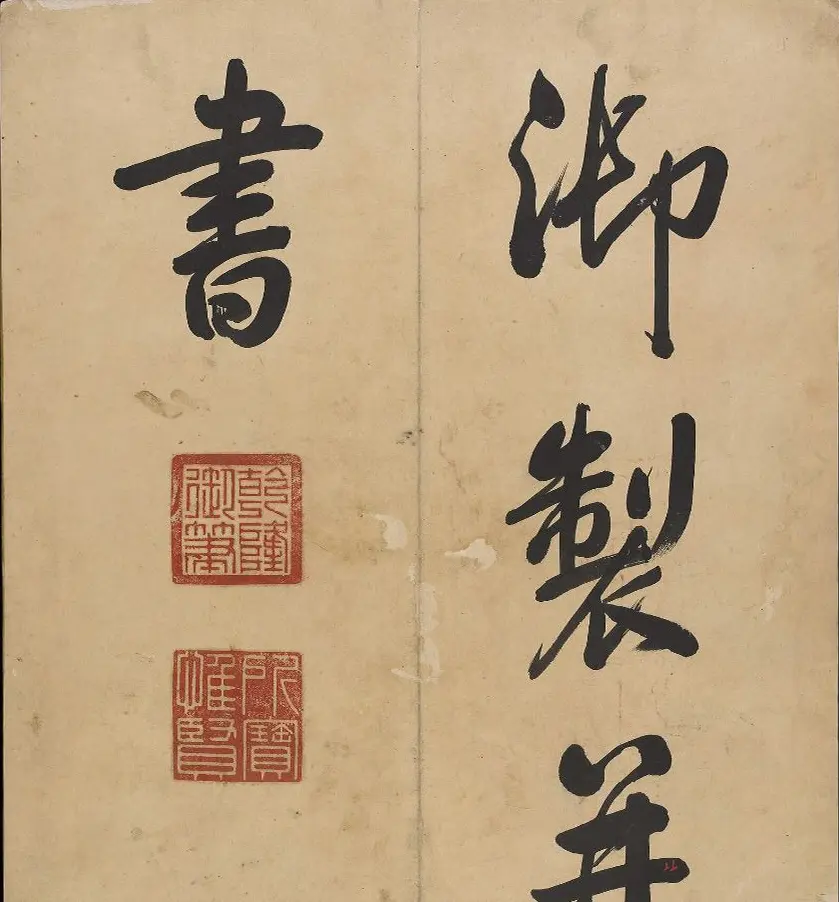 御製并
書
乾隆御筆
所寶惟賢